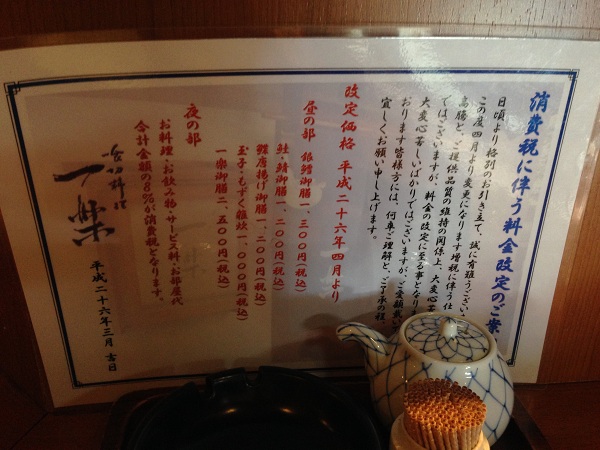 消費税に伴う料金改定のご案
日頃より格別のお引き立て、誠に有難うござい
この度四月より変更になります増税に伴う仕
高騰と、ご提供品質の維持の関係上、大変心苦
ではございますが、料金の改定に至る事となり
大変心苦しいばかりではございますが、ご愛顧戴い
おります皆様方には、何卒ご理解と、ご了承の程、
宜しくお願い申し上げます。
改定価格 平成二十六年四月より
昼の部 銀鱈御膳 一、三〇〇円(税込)
鮭・鯖御膳 一、二〇〇円(税込)
鶏唐揚げ御膳 一、二〇〇円(税込)
玉子・もずく雑炊 一、〇〇〇円(税込)
一楽御膳 二、五〇〇円(税込)
夜の部
お料理・お飲み物・サービス料・お部屋代
合計金額の8%が消費税となります。
平成二十六年三月 吉日